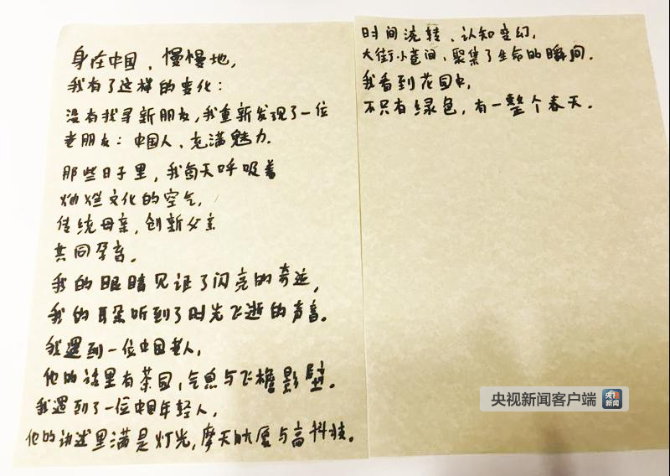 身在中国，慢慢地，
我有了这样的变化：
没有找寻新朋友，我重新发现了一位
老朋友：中国人，充满魅力.
那些日子里，我每天呼吸着
灿烂文化的空气，
传统母亲，创新父亲
共同孕育。
我的眼睛见证了闪亮的奇迹，
我的耳朵听到了时光飞逝的声音。
我遇到一位中国老人，
他的话里有茶园，气息与飞檐影壁。
我遇到了一位中国年轻人，
他的讲述里满是灯光，摩天大厦与高科技。
时间流转、认知变幻，
大街小巷间，聚集了生命的瞬间.
我看到花园中，
不只有绿色，有一整个春天.
央视新闻客户端 央视新闻